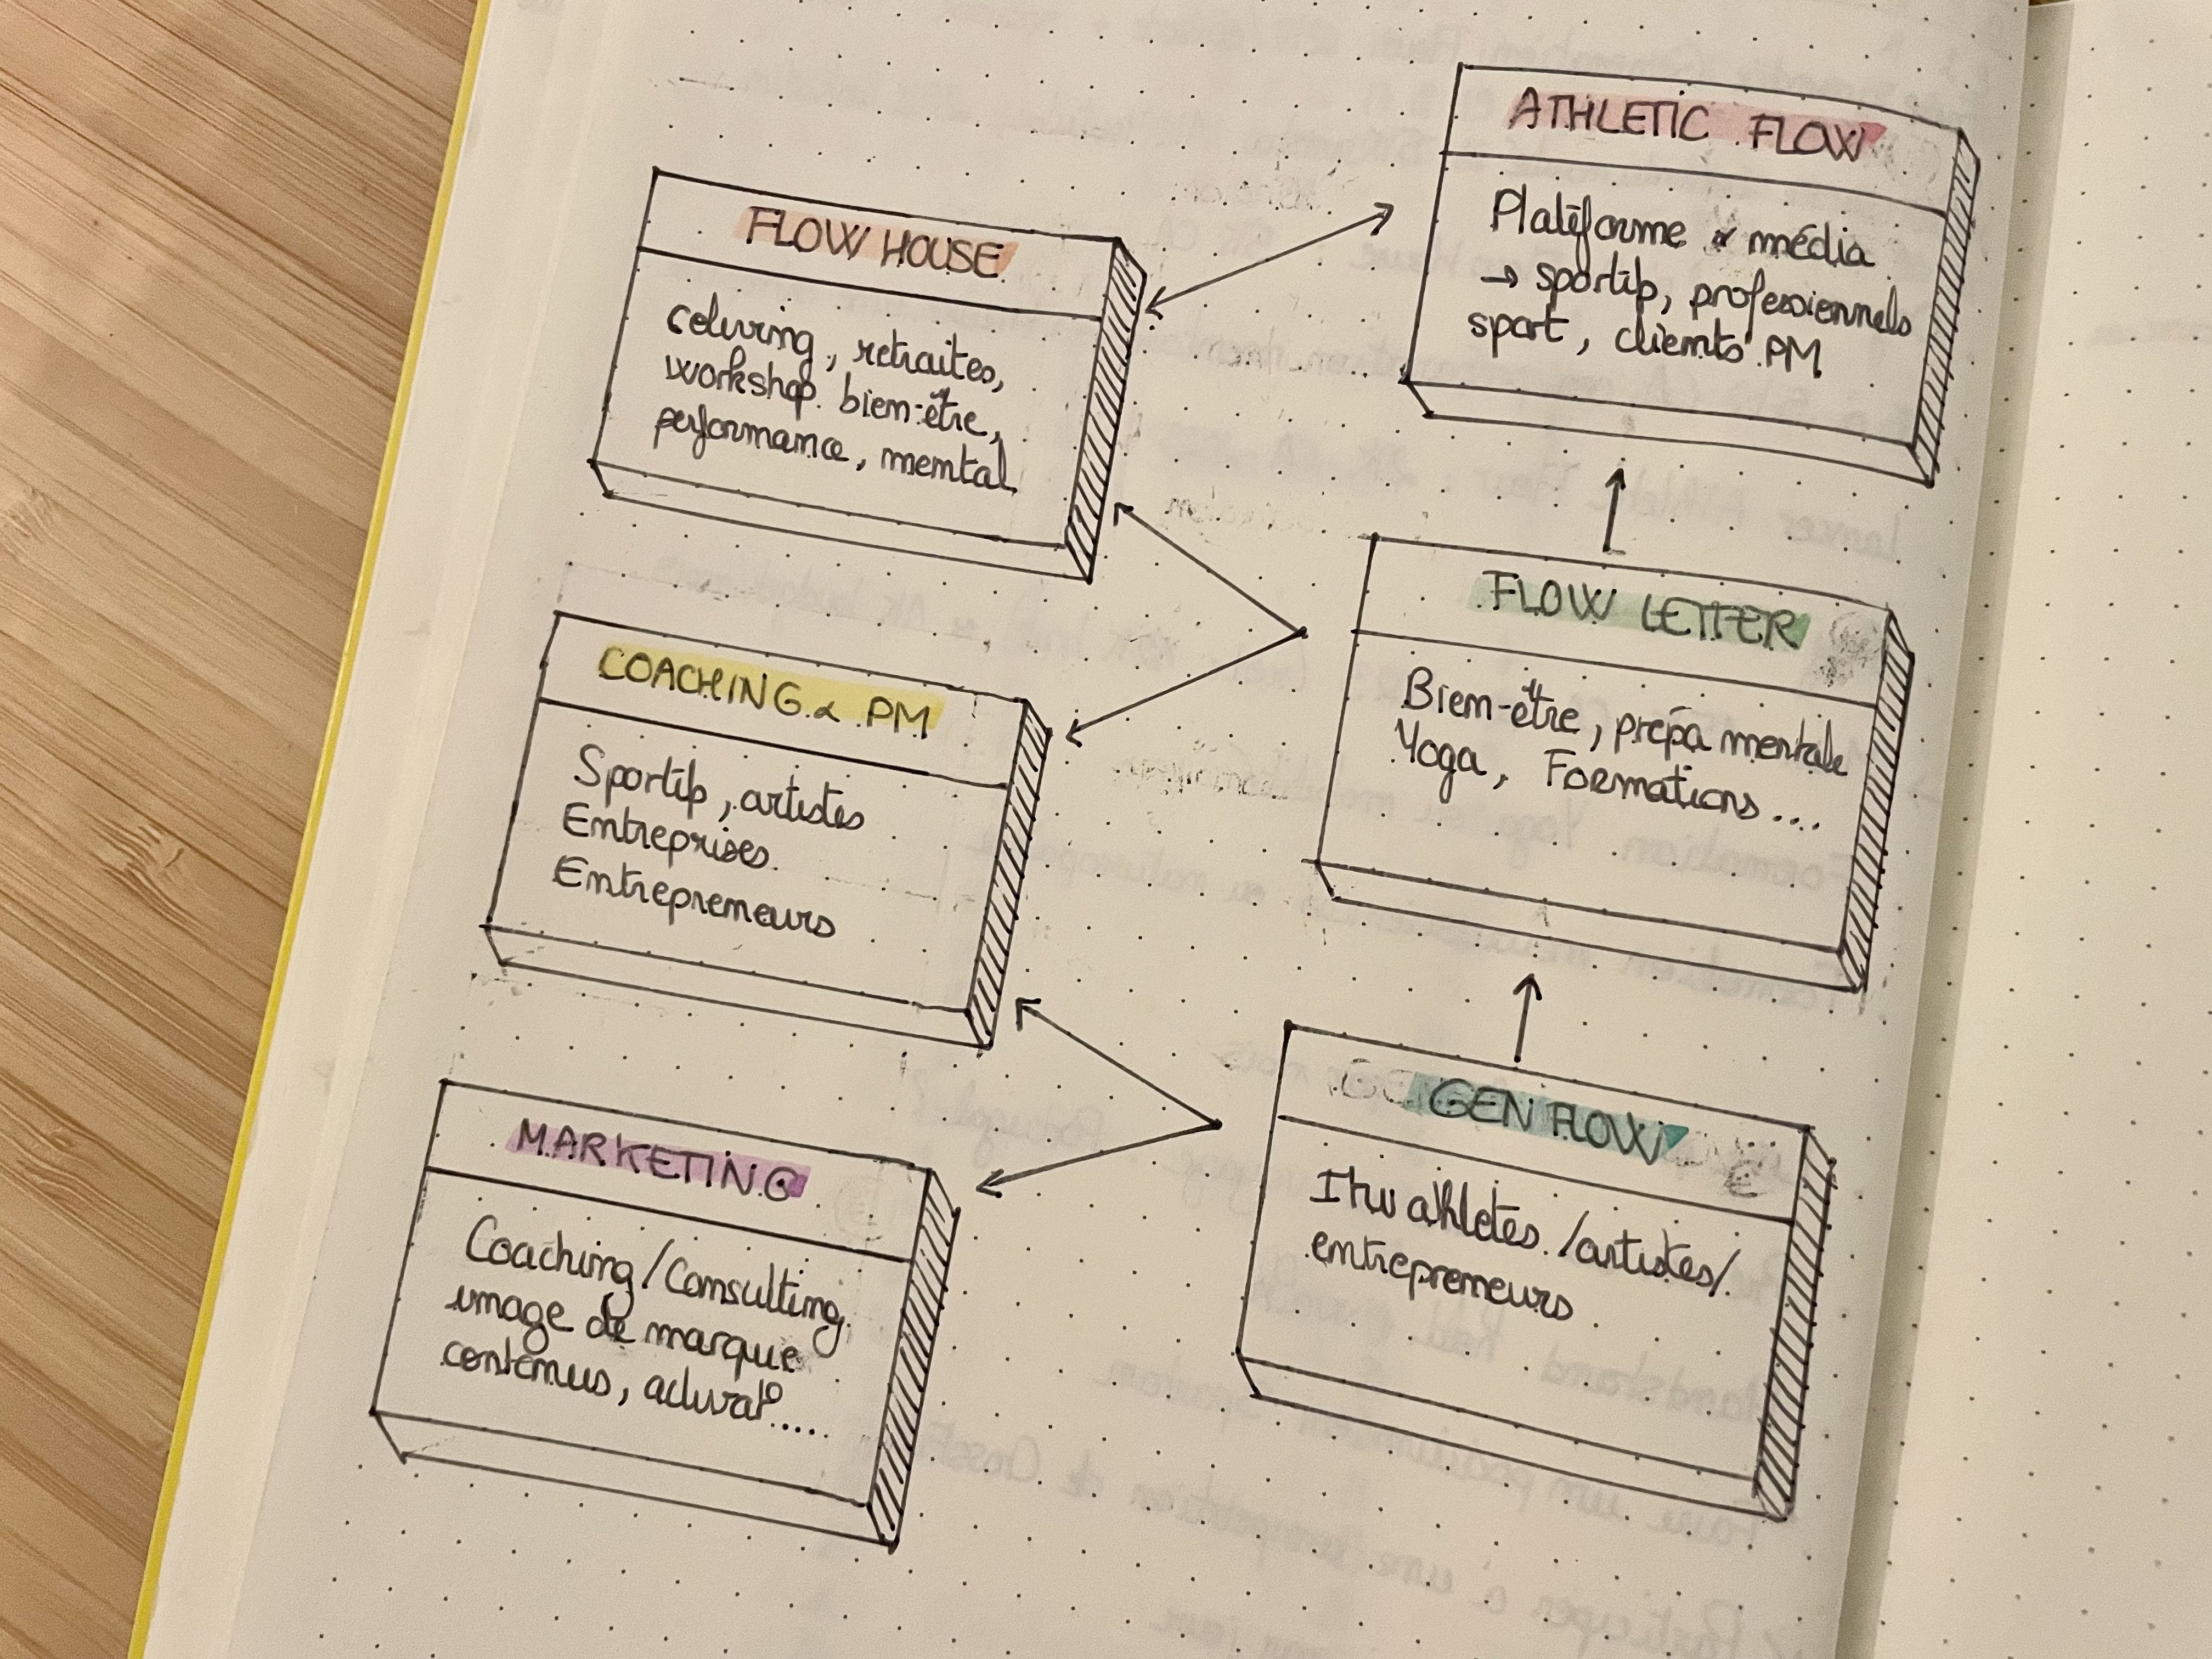 FLOW HOUSE
coliving, retraites,
workshop bien-être,
performance, mental
ATHLETIC FLOW
Plateforme & média
→ sportifs, professionnels
sport, clients PM
COACHING & PM
Sportifs, artistes
Entreprises
Entrepreneurs
FLOW LETTER
Bien-être, prépa mentale
Yoga, Formations ....
MARKETING
Coaching/Consulting
image de marque
contenus, activat°.....
GEN FLOW
Itw athletes /artistes/
entrepreneurs